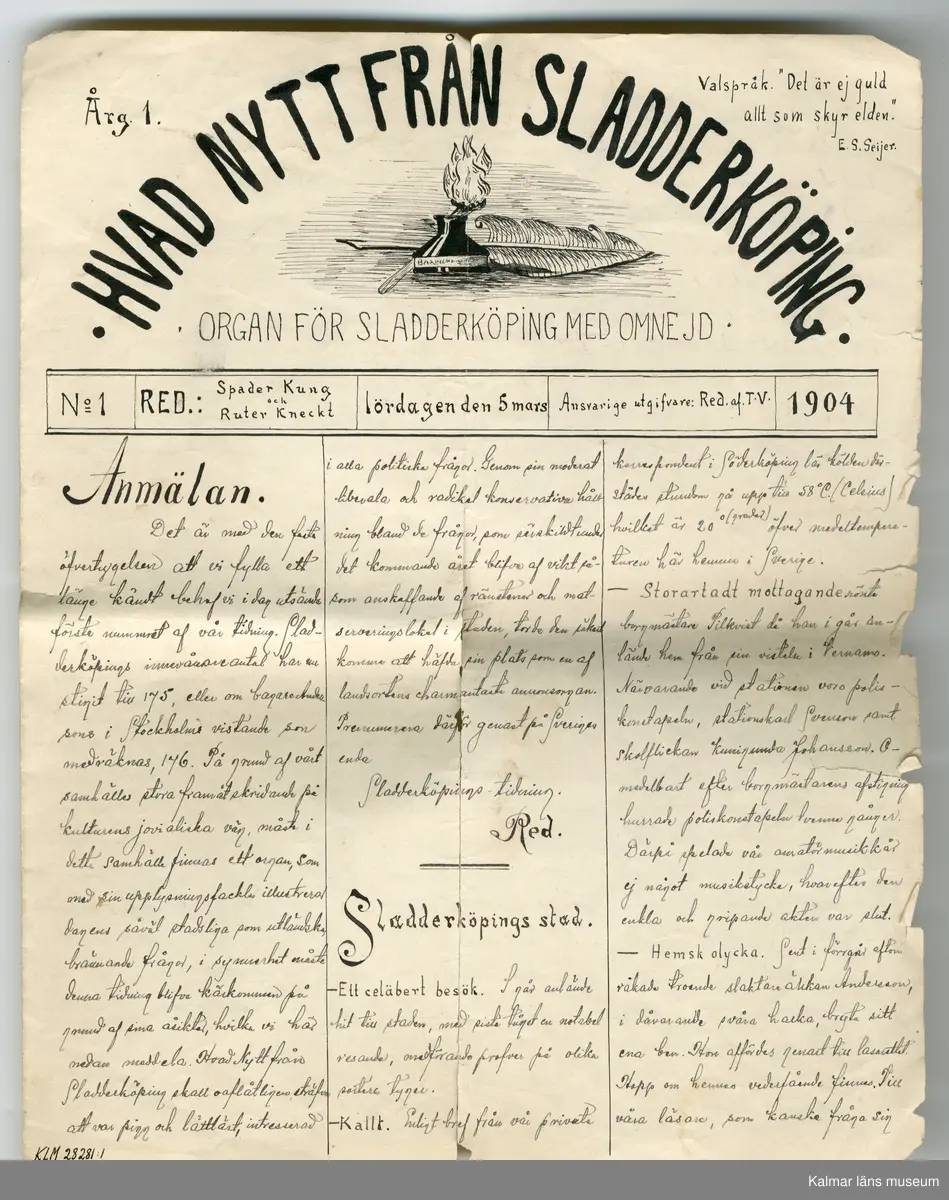 Årg. 1.
Valspråk. "Det är ej guld
allt som skyr elden."
E. S. Geijer.
· HVAD NYTT FRÅN SLADDERKÖPING ·
· ORGAN FÖR SLADDERKÖPING MED OMNEJD ·
No 1
RED.: Spader Kung
och
Ruter Kneckt
lördagen den 5 mars
Ansvarige utgifvare: Red. af. T·V·
1904
Anmälan.
Det är med den fasta
öfvertygelsen att vi fylla ett
länge kändt behof vi i dag utsända
första numret af vår tidning. Slad-
derköpings innevånareantal har nu
stigit till 175, eller om bagare
sons i Stockholm vistande son
medräknas, 176. På grund af vårt
samhälles stora framåtskridande på
kulturens jovialiska väg, måste i
detta samhälle finnas ett organ, som
med sin upplysningsfackla illustrerar
dagens såväl stadsliga som utländska
brännande frågor, i synnerhet måste
denna tidning blifva kärkommen på
grund af sina åsikter, hvilka vi här
nedan meddela. Hvad Nytt från
Sladderköping skall oaflåtligen sträfva
att var pigg och lättläst, intresserad
i alla politiska frågor. Genom sin moderat
liberala och radikal konservativa håll-
ning bland de frågor, som särskildt under
det kommande året blifva af vikt så-
som anskaffande af rännstenar och mat-
serveringslokal i staden, torde den säkert
komma att häfda sin plats som en af
landsortens charmantaste annonsorgan.
Prenumerera därför genast på Sveriges
enda
Sladderköpings-tidning.
Red.
Sladderköpings stad.
— Ett celäbert besök. I går anlände
hit till staden, med sista tåget en notabel
resande, medförande profver på olika
sorters tyger.
— Kallt. Enligt bref från vår private
korrespondent i Söderköping lär kölden där-
städes stundom gå upp till 58° C. (Celsius)
hvilket är 20° (grader) öfver medeltempera-
turen här hemma i Sverige.
— Storartadt mottagande rönte
borgmästare Pilkvist då han i går an-
lände hem från sin vistelse i Vernamo.
Närvarande vid stationen voro polis-
konstapeln, stationskarl Svenson samt
skolflickan Kunigunda Johansson. O-
medelbart efter borgmästarens afstigning
hurrade poliskonstapeln tvenne gånger.
Därpå spelade vår amatörmusikkår
ej något musikstycke, hvarefter den
enkla och gripande akten var slut.
— Hemsk olycka. Sent i förrgår afton
råkade troende slaktare änkan Anderson,
i dåvarande svåra halka, bryta sitt
ena ben. Hon affördes genast till lasarettet.
Hopp om hennes vederfående finnes. Till
våra läsare, som kanske fråga sig
KLM 28281:1
Kalmar läns museum